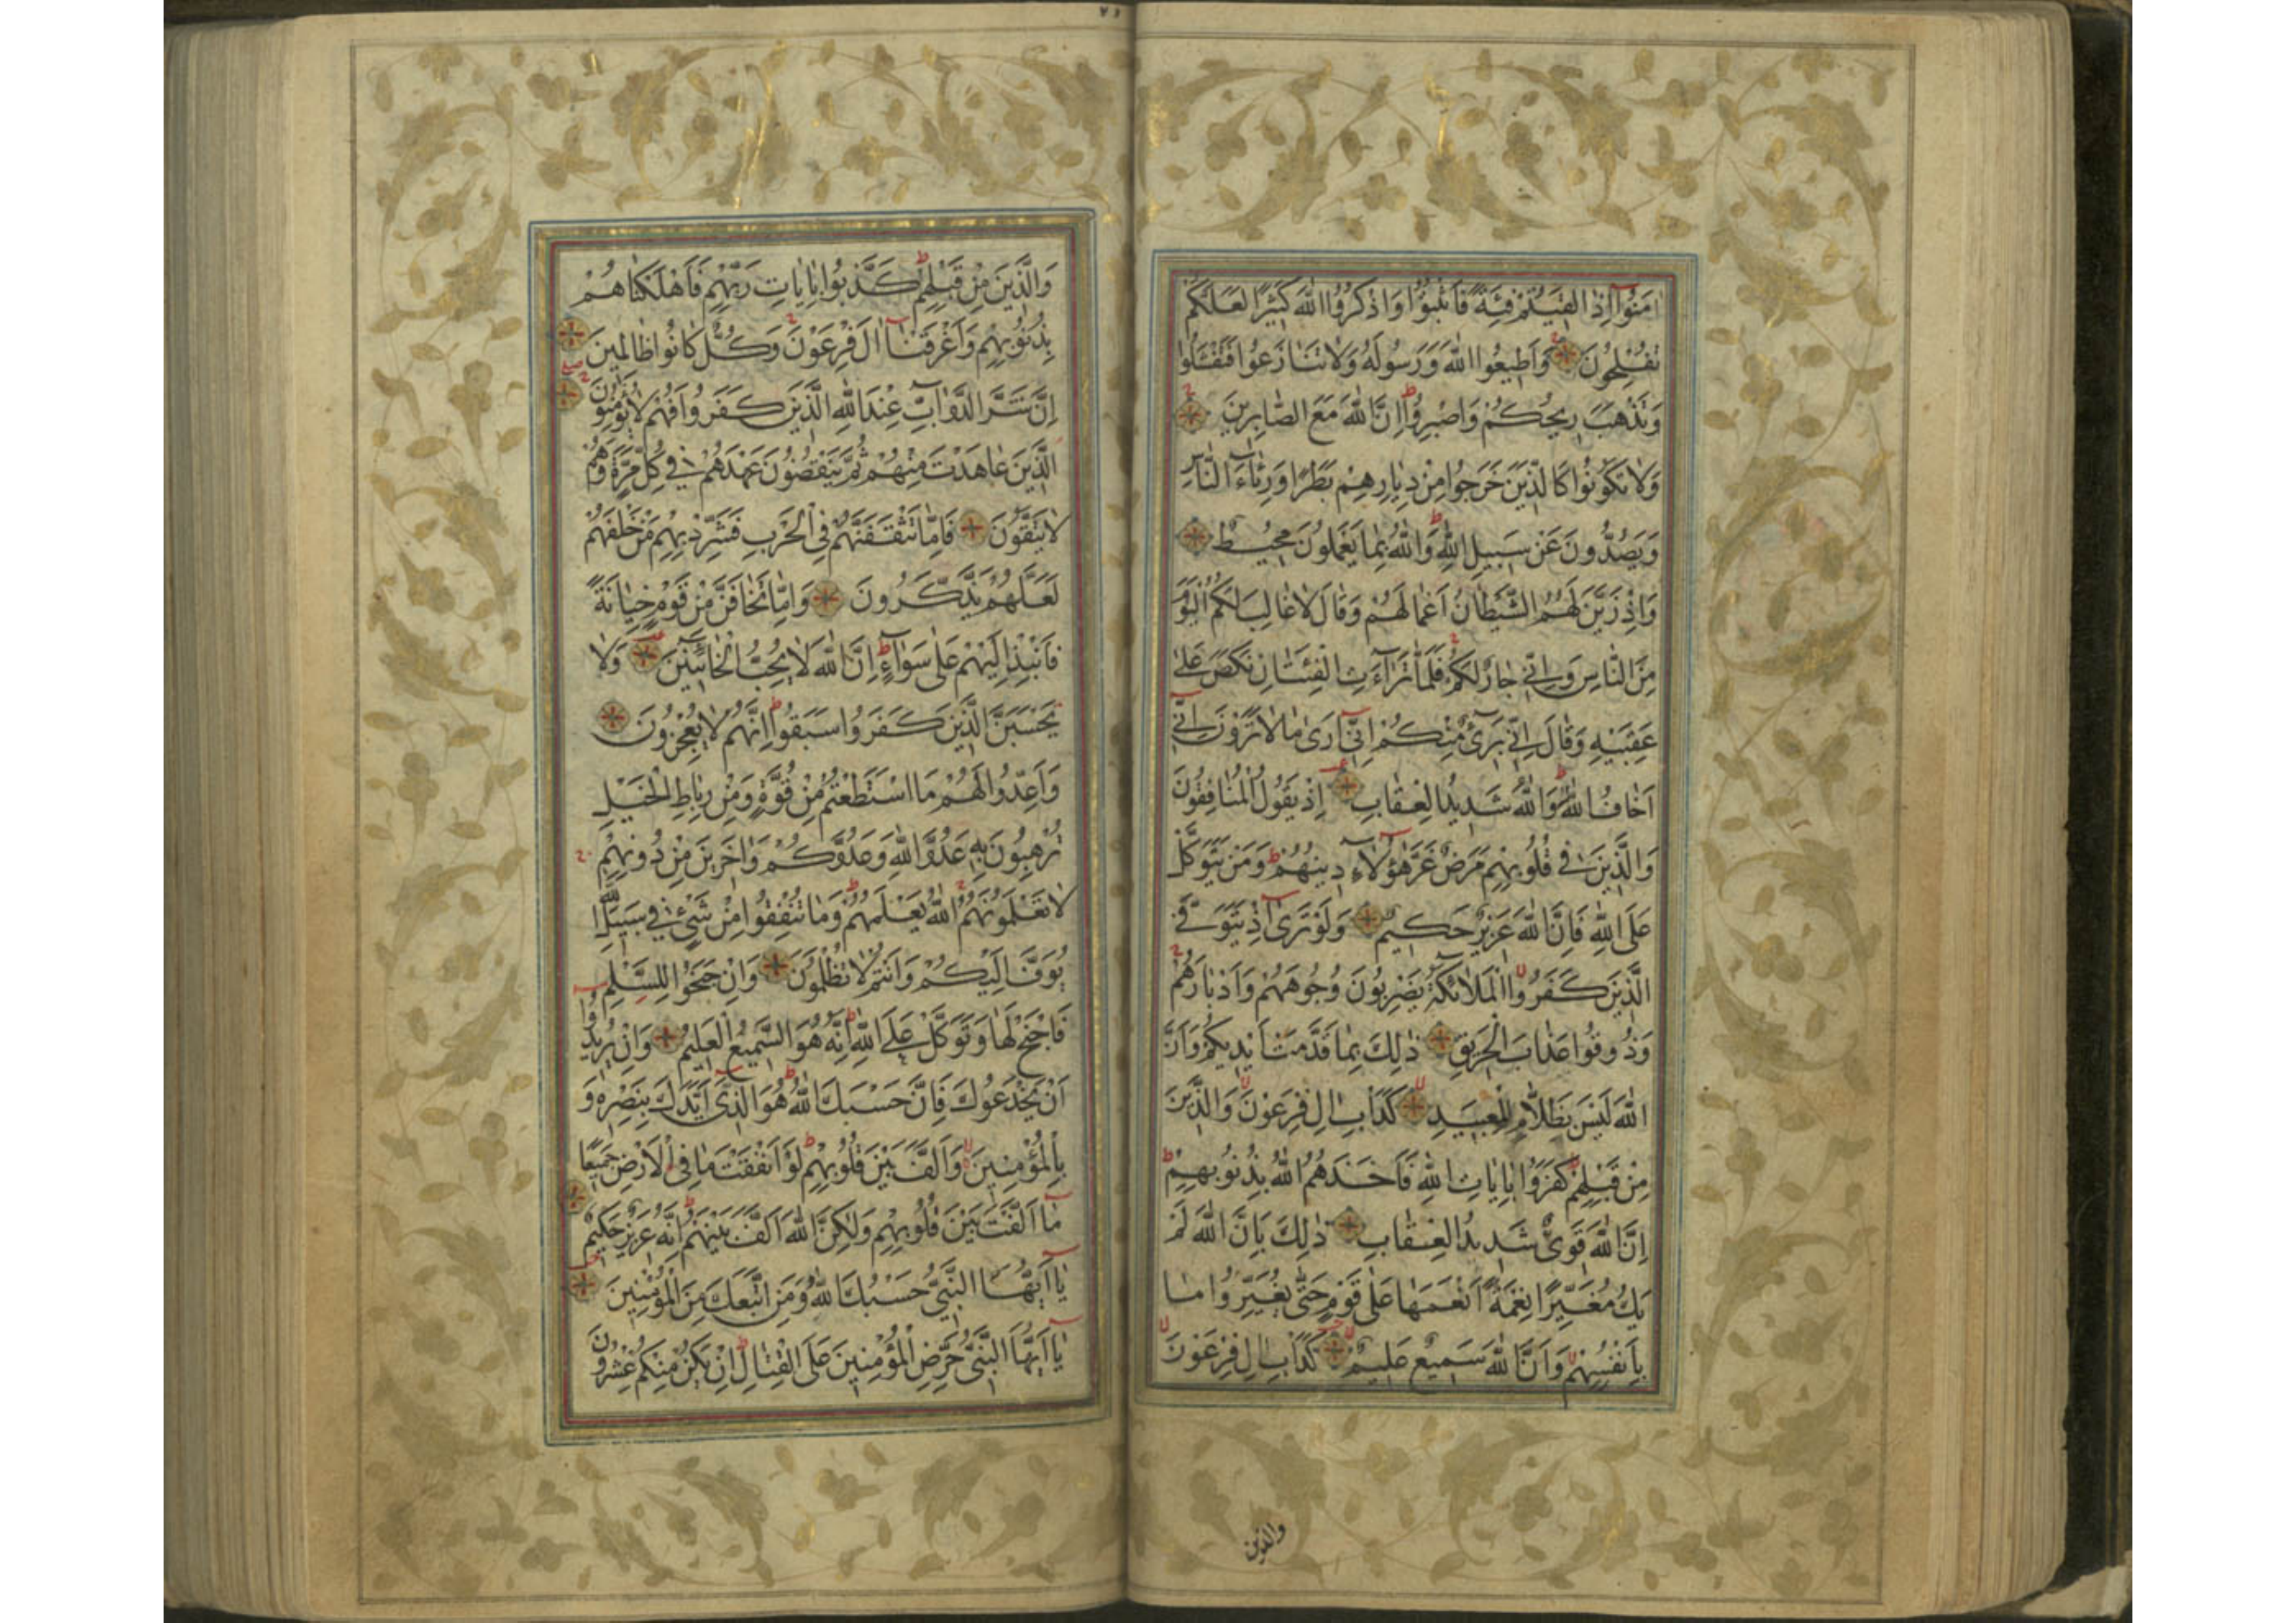 اٰمَنُوٓا اِذَا لَقِيتُمْ فِئَةً فَاثْبُتُوا وَاذْكُرُوا اللّٰهَ كَثِيرًا لَعَلَّكُمْ
تُفْلِحُونَ وَاَطِيعُوا اللّٰهَ وَرَسُولَهُ وَلَا تَنَازَعُوا فَتَفْشَلُوا
وَتَذْهَبَ رِيحُكُمْ وَاصْبِرُوا اِنَّ اللّٰهَ مَعَ الصَّابِرِينَ
وَلَا تَكُونُوا كَالَّذِينَ خَرَجُوا مِنْ دِيَارِهِمْ بَطَرًا وَرِئَآءَ النَّاسِ
وَيَصُدُّونَ عَنْ سَبِيلِ اللّٰهِ وَاللّٰهُ بِمَا يَعْمَلُونَ مُحِيطٌ
وَاِذْ زَيَّنَ لَهُمُ الشَّيْطَانُ اَعْمَالَهُمْ وَقَالَ لَا غَالِبَ لَكُمُ الْيَوْمَ
مِنَ النَّاسِ وَاِنِّي جَارٌ لَكُمْ فَلَمَّا تَرَآءَتِ الْفِئَتَانِ نَكَصَ عَلٰى
عَقِبَيْهِ وَقَالَ اِنِّي بَرِٓىءٌ مِنْكُمْ اِنِّٓي اَرٰى مَا لَا تَرَوْنَ اِنِّٓي
اَخَافُ اللّٰهَ وَاللّٰهُ شَدِيدُ الْعِقَابِ اِذْ يَقُولُ الْمُنَافِقُونَ
وَالَّذِينَ فِي قُلُوبِهِمْ مَرَضٌ غَرَّ هٰٓؤُلَآءِ دِينُهُمْ وَمَنْ يَتَوَكَّلْ
عَلَى اللّٰهِ فَاِنَّ اللّٰهَ عَزِيزٌ حَكِيمٌ وَلَوْ تَرٰٓى اِذْ يَتَوَفَّى
الَّذِينَ كَفَرُوا الْمَلَآئِكَةُ يَضْرِبُونَ وُجُوهَهُمْ وَاَدْبَارَهُمْ
وَذُوقُوا عَذَابَ الْحَرِيقِ ذٰلِكَ بِمَا قَدَّمَتْ اَيْدِيكُمْ وَاَنَّ
اللّٰهَ لَيْسَ بِظَلَّامٍ لِلْعَبِيدِ كَدَاْبِ اٰلِ فِرْعَوْنَ وَالَّذِينَ
مِنْ قَبْلِهِمْ كَفَرُوا بِاٰيَاتِ اللّٰهِ فَاَخَذَهُمُ اللّٰهُ بِذُنُوبِهِمْ
اِنَّ اللّٰهَ قَوِيٌّ شَدِيدُ الْعِقَابِ ذٰلِكَ بِاَنَّ اللّٰهَ لَمْ
يَكُ مُغَيِّرًا نِعْمَةً اَنْعَمَهَا عَلٰى قَوْمٍ حَتّٰى يُغَيِّرُوا مَا
بِاَنْفُسِهِمْ وَاَنَّ اللّٰهَ سَمِيعٌ عَلِيمٌ كَدَاْبِ اٰلِ فِرْعَوْنَ
والذين
وَالَّذِينَ مِنْ قَبْلِهِمْ كَذَّبُوا بِاٰيَاتِ رَبِّهِمْ فَاَهْلَكْنَاهُمْ
بِذُنُوبِهِمْ وَاَغْرَقْنَآ اٰلَ فِرْعَوْنَ وَكُلٌّ كَانُوا ظَالِمِينَ
اِنَّ شَرَّ الدَّوَآبِّ عِنْدَ اللّٰهِ الَّذِينَ كَفَرُوا فَهُمْ لَا يُؤْمِنُونَ
الَّذِينَ عَاهَدْتَ مِنْهُمْ ثُمَّ يَنْقُضُونَ عَهْدَهُمْ فِي كُلِّ مَرَّةٍ وَهُمْ
لَا يَتَّقُونَ فَاِمَّا تَثْقَفَنَّهُمْ فِي الْحَرْبِ فَشَرِّدْ بِهِمْ مَنْ خَلْفَهُمْ
لَعَلَّهُمْ يَذَّكَّرُونَ وَاِمَّا تَخَافَنَّ مِنْ قَوْمٍ خِيَانَةً
فَانْبِذْ اِلَيْهِمْ عَلٰى سَوَآءٍ اِنَّ اللّٰهَ لَا يُحِبُّ الْخَآئِنِينَ وَلَا
يَحْسَبَنَّ الَّذِينَ كَفَرُوا سَبَقُوا اِنَّهُمْ لَا يُعْجِزُونَ
وَاَعِدُّوا لَهُمْ مَا اسْتَطَعْتُمْ مِنْ قُوَّةٍ وَمِنْ رِبَاطِ الْخَيْلِ
تُرْهِبُونَ بِهِ عَدُوَّ اللّٰهِ وَعَدُوَّكُمْ وَاٰخَرِينَ مِنْ دُونِهِمْ
لَا تَعْلَمُونَهُمُ اللّٰهُ يَعْلَمُهُمْ وَمَا تُنْفِقُوا مِنْ شَيْءٍ فِي سَبِيلِ اللّٰهِ
يُوَفَّ اِلَيْكُمْ وَاَنْتُمْ لَا تُظْلَمُونَ وَاِنْ جَنَحُوا لِلسَّلْمِ
فَاجْنَحْ لَهَا وَتَوَكَّلْ عَلَى اللّٰهِ اِنَّهُ هُوَ السَّمِيعُ الْعَلِيمُ وَاِنْ يُرِيدُوٓا
اَنْ يَخْدَعُوكَ فَاِنَّ حَسْبَكَ اللّٰهُ هُوَ الَّذِٓي اَيَّدَكَ بِنَصْرِهِ وَ
بِالْمُؤْمِنِينَ وَاَلَّفَ بَيْنَ قُلُوبِهِمْ لَوْ اَنْفَقْتَ مَا فِي الْاَرْضِ جَمِيعًا
مَآ اَلَّفْتَ بَيْنَ قُلُوبِهِمْ وَلٰكِنَّ اللّٰهَ اَلَّفَ بَيْنَهُمْ اِنَّهُ عَزِيزٌ حَكِيمٌ
يَآ اَيُّهَا النَّبِيُّ حَسْبُكَ اللّٰهُ وَمَنِ اتَّبَعَكَ مِنَ الْمُؤْمِنِينَ
يَآ اَيُّهَا النَّبِيُّ حَرِّضِ الْمُؤْمِنِينَ عَلَى الْقِتَالِ اِنْ يَكُنْ مِنْكُمْ عِشْرُونَ